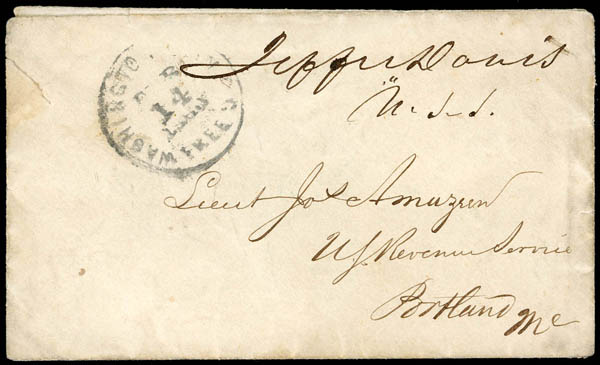 WASHINGTO
14
FREE
Jeffer Davis
U.S.S.
Lieut Jos Amazeen
U.S. Revenue Service
Portland Me